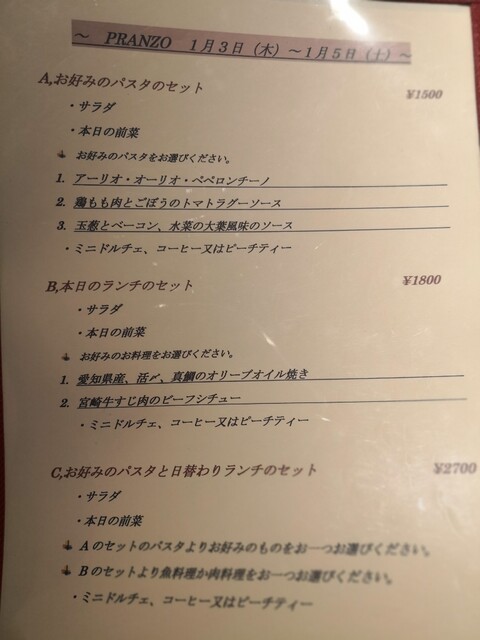 ～ PRANZO 1月3日（木）～1月5日（土）～
A,お好みのパスタのセット ¥1500
・サラダ
・本日の前菜
お好みのパスタをお選びください。
1. アーリオ・オーリオ・ペペロンチーノ
2. 鶏もも肉とごぼうのトマトラグーソース
3. 玉葱とベーコン、水菜の大葉風味のソース
・ミニドルチェ、コーヒー又はピーチティー
B,本日のランチのセット ¥1800
・サラダ
・本日の前菜
お好みのお料理をお選びください。
1. 愛知県産、活〆、真鯛のオリーブオイル焼き
2. 宮崎牛すじ肉のビーフシチュー
・ミニドルチェ、コーヒー又はピーチティー
C,お好みのパスタと日替わりランチのセット ¥2700
・サラダ
・本日の前菜
Aのセットのパスタよりお好みのものをお一つお選びください。
Bのセットより魚料理か肉料理をお一つお選びください。
・ミニドルチェ、コーヒー又はピーチティー